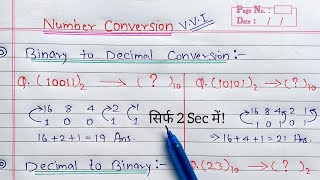 Number Conversion V.V.I
Page No.:
Date: / /
Binary to Decimal Conversion:-
Q. (10011)₂ → ( ? )₁₀ Q. (10101)₂ → (?)₁₀
16 8 4 2 1 16 8 4 2 1
1 0 0 1 1 सिर्फ 2 Sec में! 1 0 1 0 1
16+2+1 = 19 Ans. ⇒ 16+4+1 = 21 Ans.
Decimal to Binary:- Q. (23)₁₀ → ( ? )₂